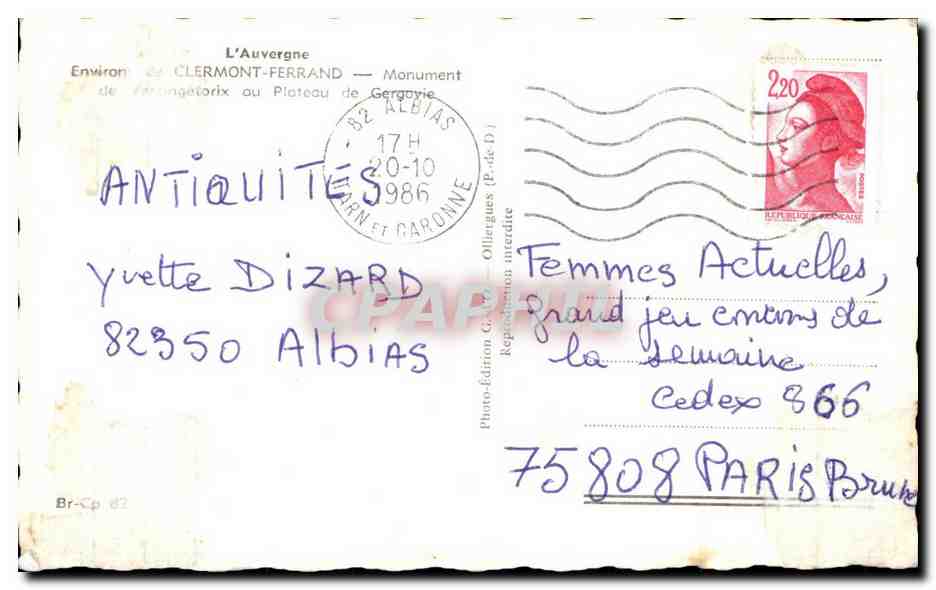 L'Auvergne
Environs de CLERMONT-FERRAND — Monument
de Vercingétorix au Plateau de Gergovie
82 ALBIAS
17 H
20-10
1986
TARN ET GARONNE
2,20
REPUBLIQUE FRANÇAISE
ANTIQUITÉS
Yvette DIZARD
82350 Albias
Br-Cp 82
Photo-Édition G. — Olliergues (P.-de-D.)
Reproduction interdite
Femmes Actuelles,
grand jeu concours de
la semaine
Cedex 866
75808 PARIS Brune
CPAPHIL